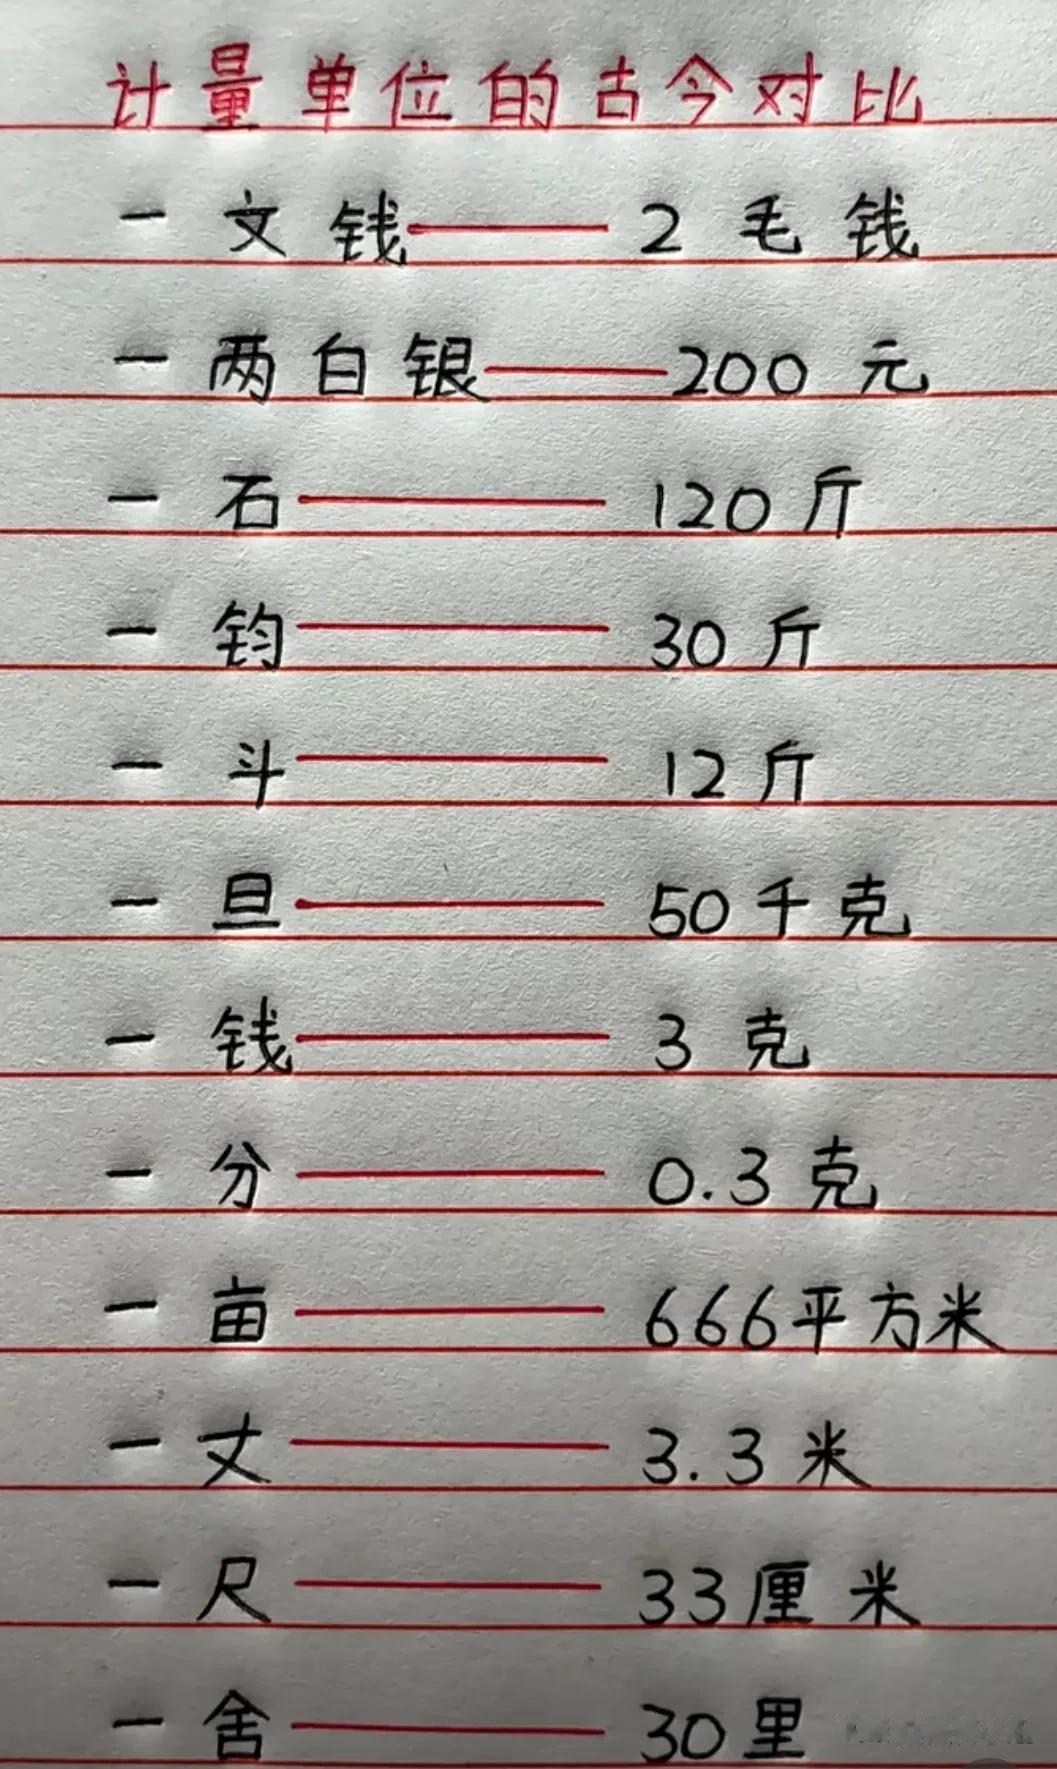 计量单位的古今对比
一文钱——2毛钱
一两白银——200元
一石——120斤
一钧——30斤
一斗——12斤
一旦——50千克
一钱——3克
一分——0.3克
一亩——666平方米
一丈——3.3米
一尺——33厘米
一舍——30里